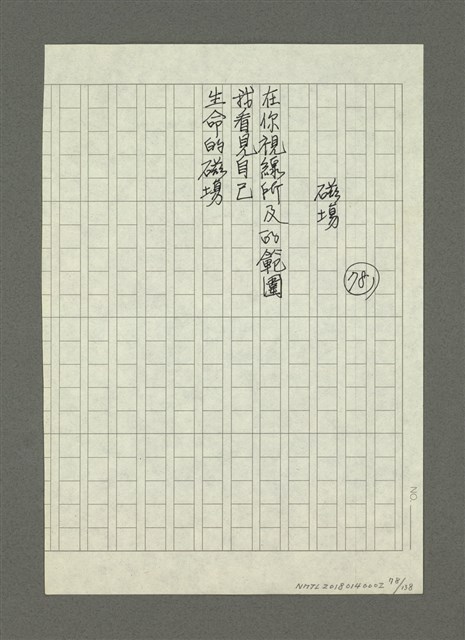 78
磁場
在你視線所及的範圍
我看見自己
生命的磁場
NO.
NMTL20180140002 78/138